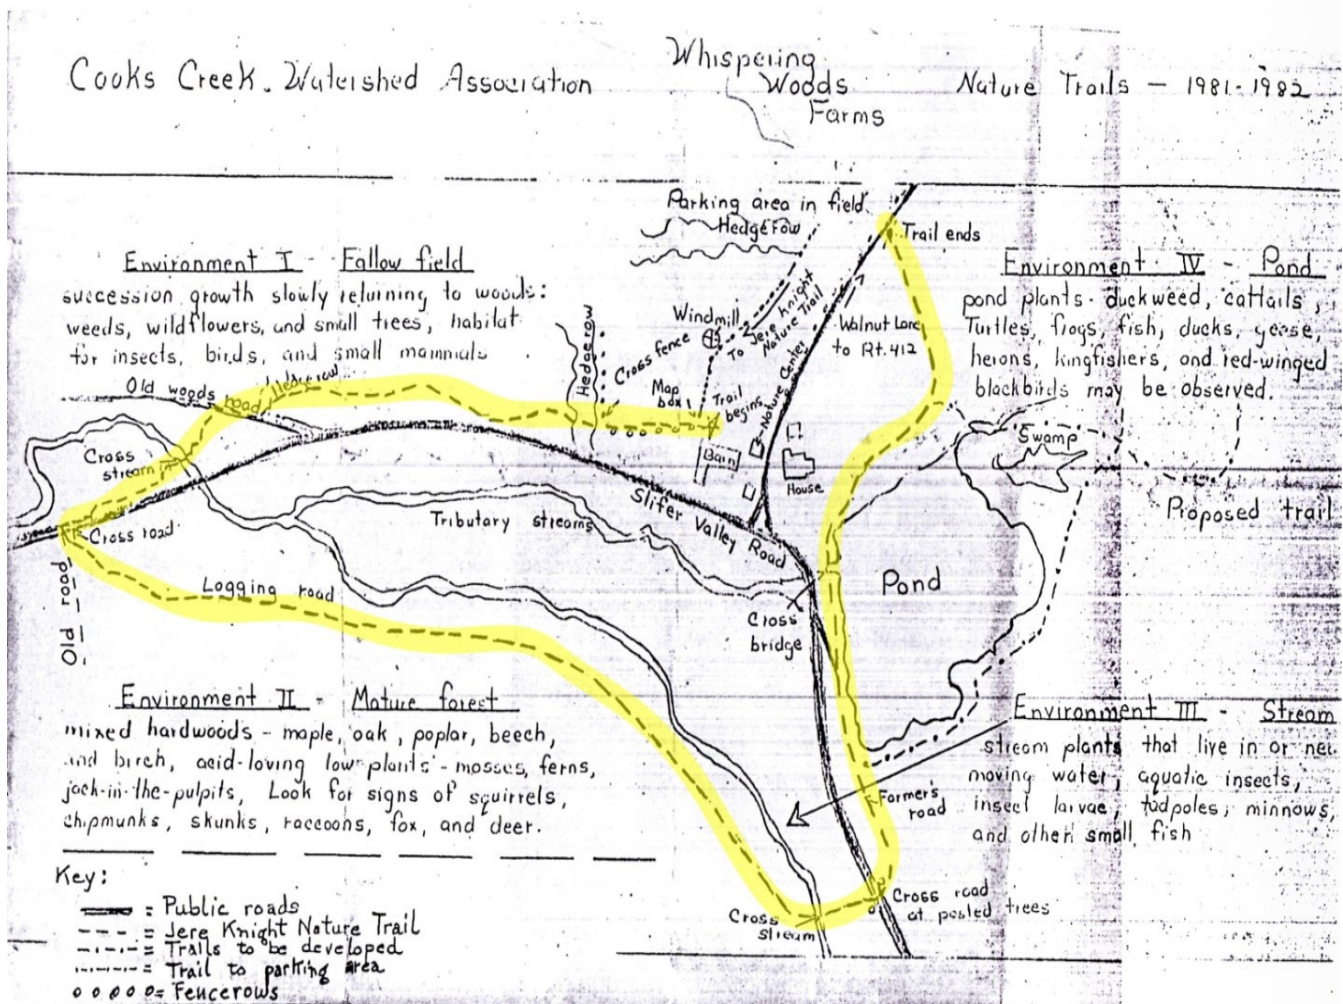 Cooks Creek Watershed Association
Whispering
Woods
Farms
Nature Trails - 1981-1982
Parking area in field
Hedgerow
Trail ends
Environment I - Fallow field
succession growth slowly returning to woods:
weeds, wildflowers, and small trees, habitat
for insects, birds, and small mammals
Environment IV - Pond
pond plants - duckweed, cattails,
Turtles, frogs, fish, ducks, geese
herons, kingfishers, and red-winged
blackbirds may be observed.
Windmill
To Jere Knight
Nature Trail
Walnut Lane
to Rt. 412
Hedgerow
Cross fence
Map
box
Trail
begins
Nature Center
Old woods road
Hedgerow
Barn
House
Swamp
Proposed trail
Cross
stream
Cross road
Tributary streams
Sliter Valley Road
Pond
Logging road
Old road
Cross
bridge
Environment II - Mature forest
mixed hardwoods - maple, oak, poplar, beech,
and birch, acid-loving low plants - mosses, ferns,
jack-in-the-pulpits, Look for signs of squirrels,
chipmunks, skunks, raccoons, fox, and deer.
Environment III - Stream
stream plants that live in or
moving water, aquatic insects,
insect larvae, tadpoles, minnows,
and other small fish
Farmer's
road
Cross road
at posted trees
Cross
stream
Key:
= Public roads
= Jere Knight Nature Trail
= Trails to be developed
= Trail to parking area
= Fencerows